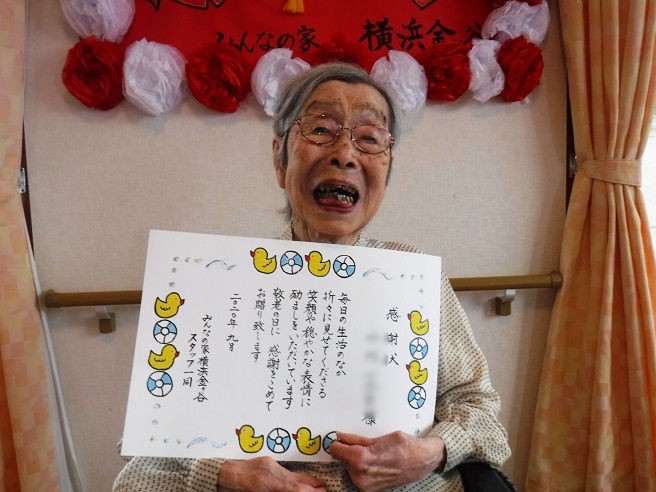 みんなの家 横浜金ヶ谷
感謝犬
様
毎日の生活のなか
折々に見せてくださる
笑顔や穏やかな表情に
励ましをいただいています
敬老の日に 感謝をこめて
お贈り致します
二〇二〇年 九月
みんなの家横浜金ヶ谷
スタッフ一同